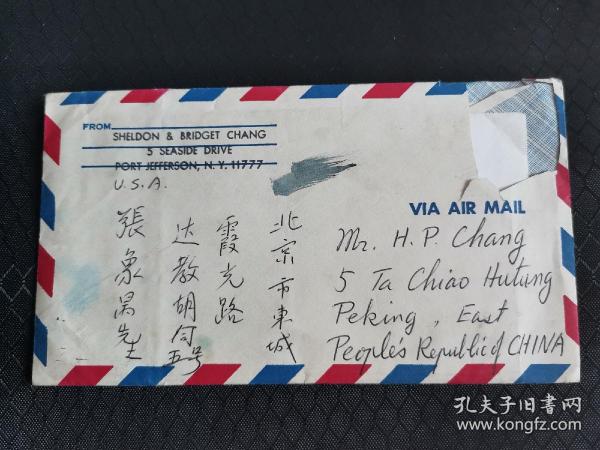 FROM
SHELDON & BRIDGET CHANG
5 SEASIDE DRIVE
PORT JEFFERSON, N. Y. 11777
U.S.A.
VIA AIR MAIL
Mr. H. P. Chang
5 Ta Chiao Hutung
Peking, East
People's Republic of CHINA
北京市東城
霞光路
达教胡同
五号
張象昺先生
孔夫子旧书网
www.kongfz.com